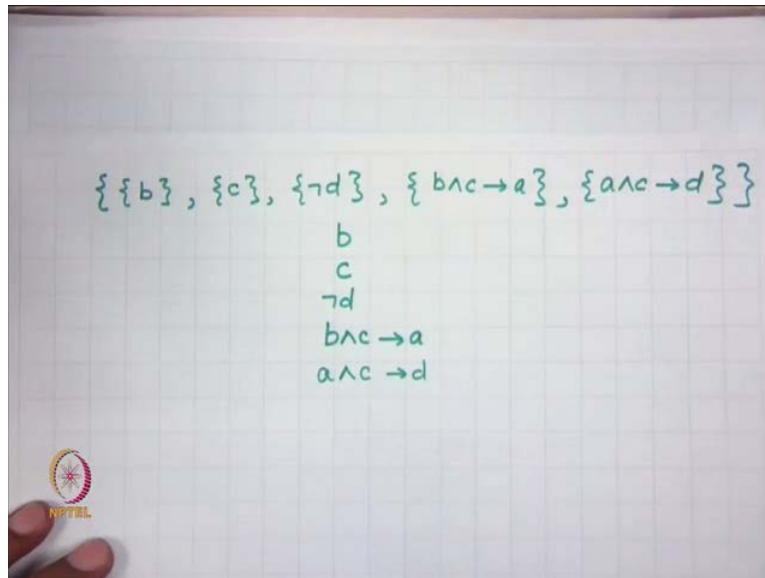 { {b} , {c}, {¬d} , { b∧c→a} , {a∧c→d} }
b
c
¬d
b∧c→a
a∧c→d
NPTEL